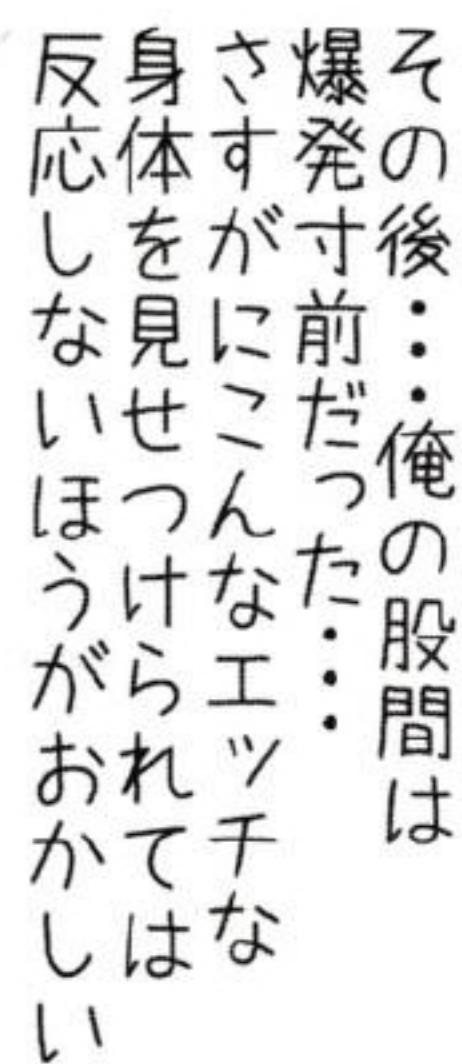 その後・・・俺の股間は
爆発寸前だった・・・
さすがにこんなエッチな
身体を見せつけられては
反応しないほうがおかしい